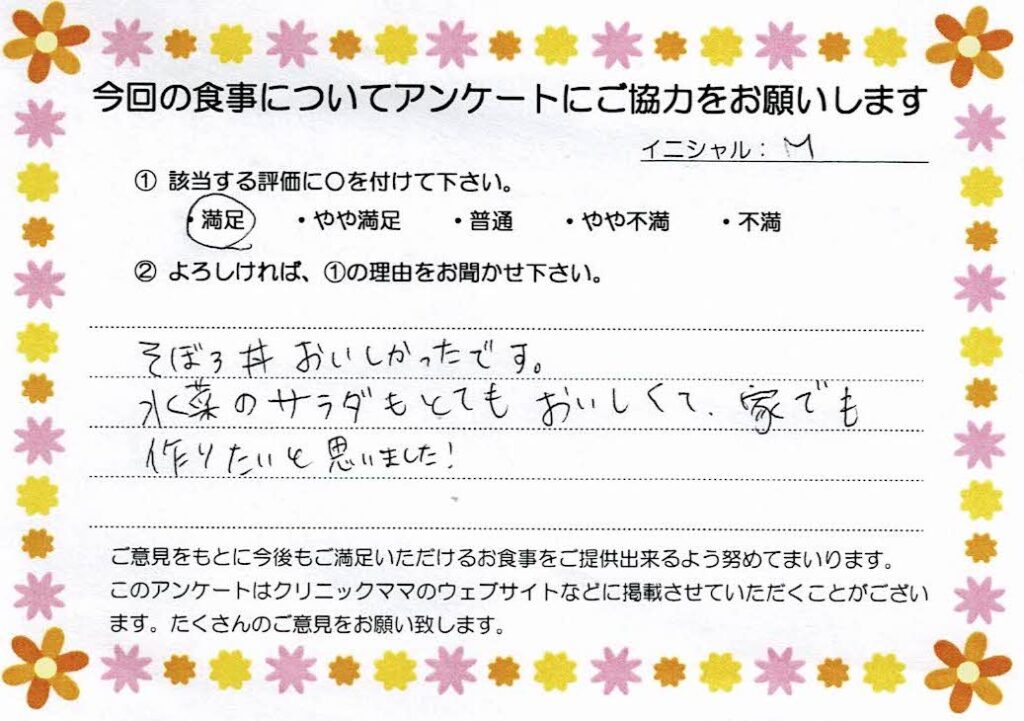 今回の食事についてアンケートにご協力をお願いします
イニシャル：M
① 該当する評価に〇を付けて下さい。
・満足 ・やや満足 ・普通 ・やや不満 ・不満
② よろしければ、①の理由をお聞かせ下さい。
そぼろ丼 おいしかったです。
水菜のサラダもとても おいしくて、家でも
作りたいと思いました!
ご意見をもとに今後もご満足いただけるお食事をご提供出来るよう努めてまいります。
このアンケートはクリニックママのウェブサイトなどに掲載させていただくことがござい
ます。たくさんのご意見をお願い致します。